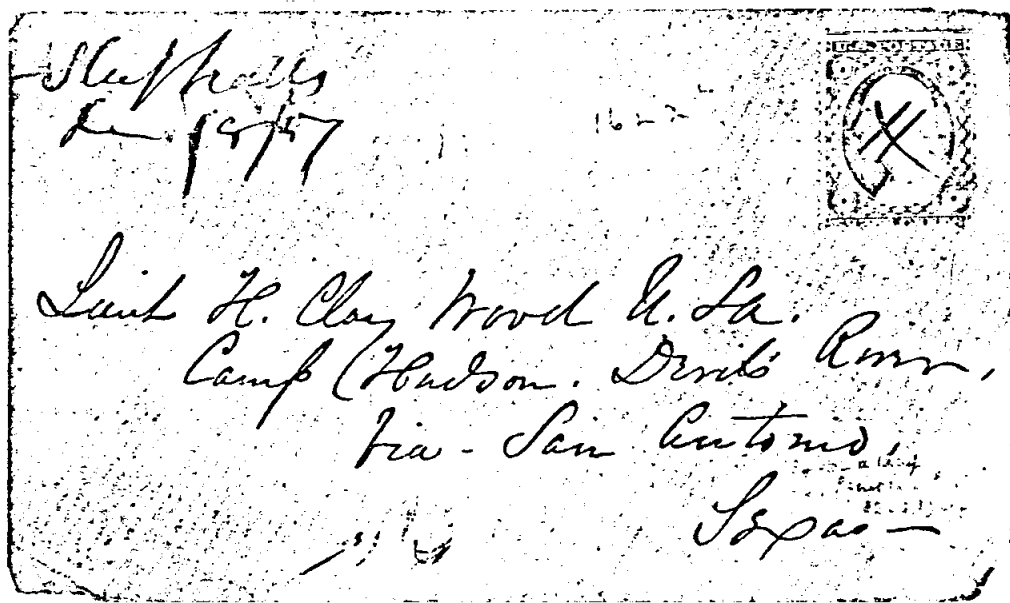 U.S. POSTAGE
1622
Lieut H. Clay Wood U.S.A.
Camp Hudson. Devils River,
Via - San Antonio,
Texas